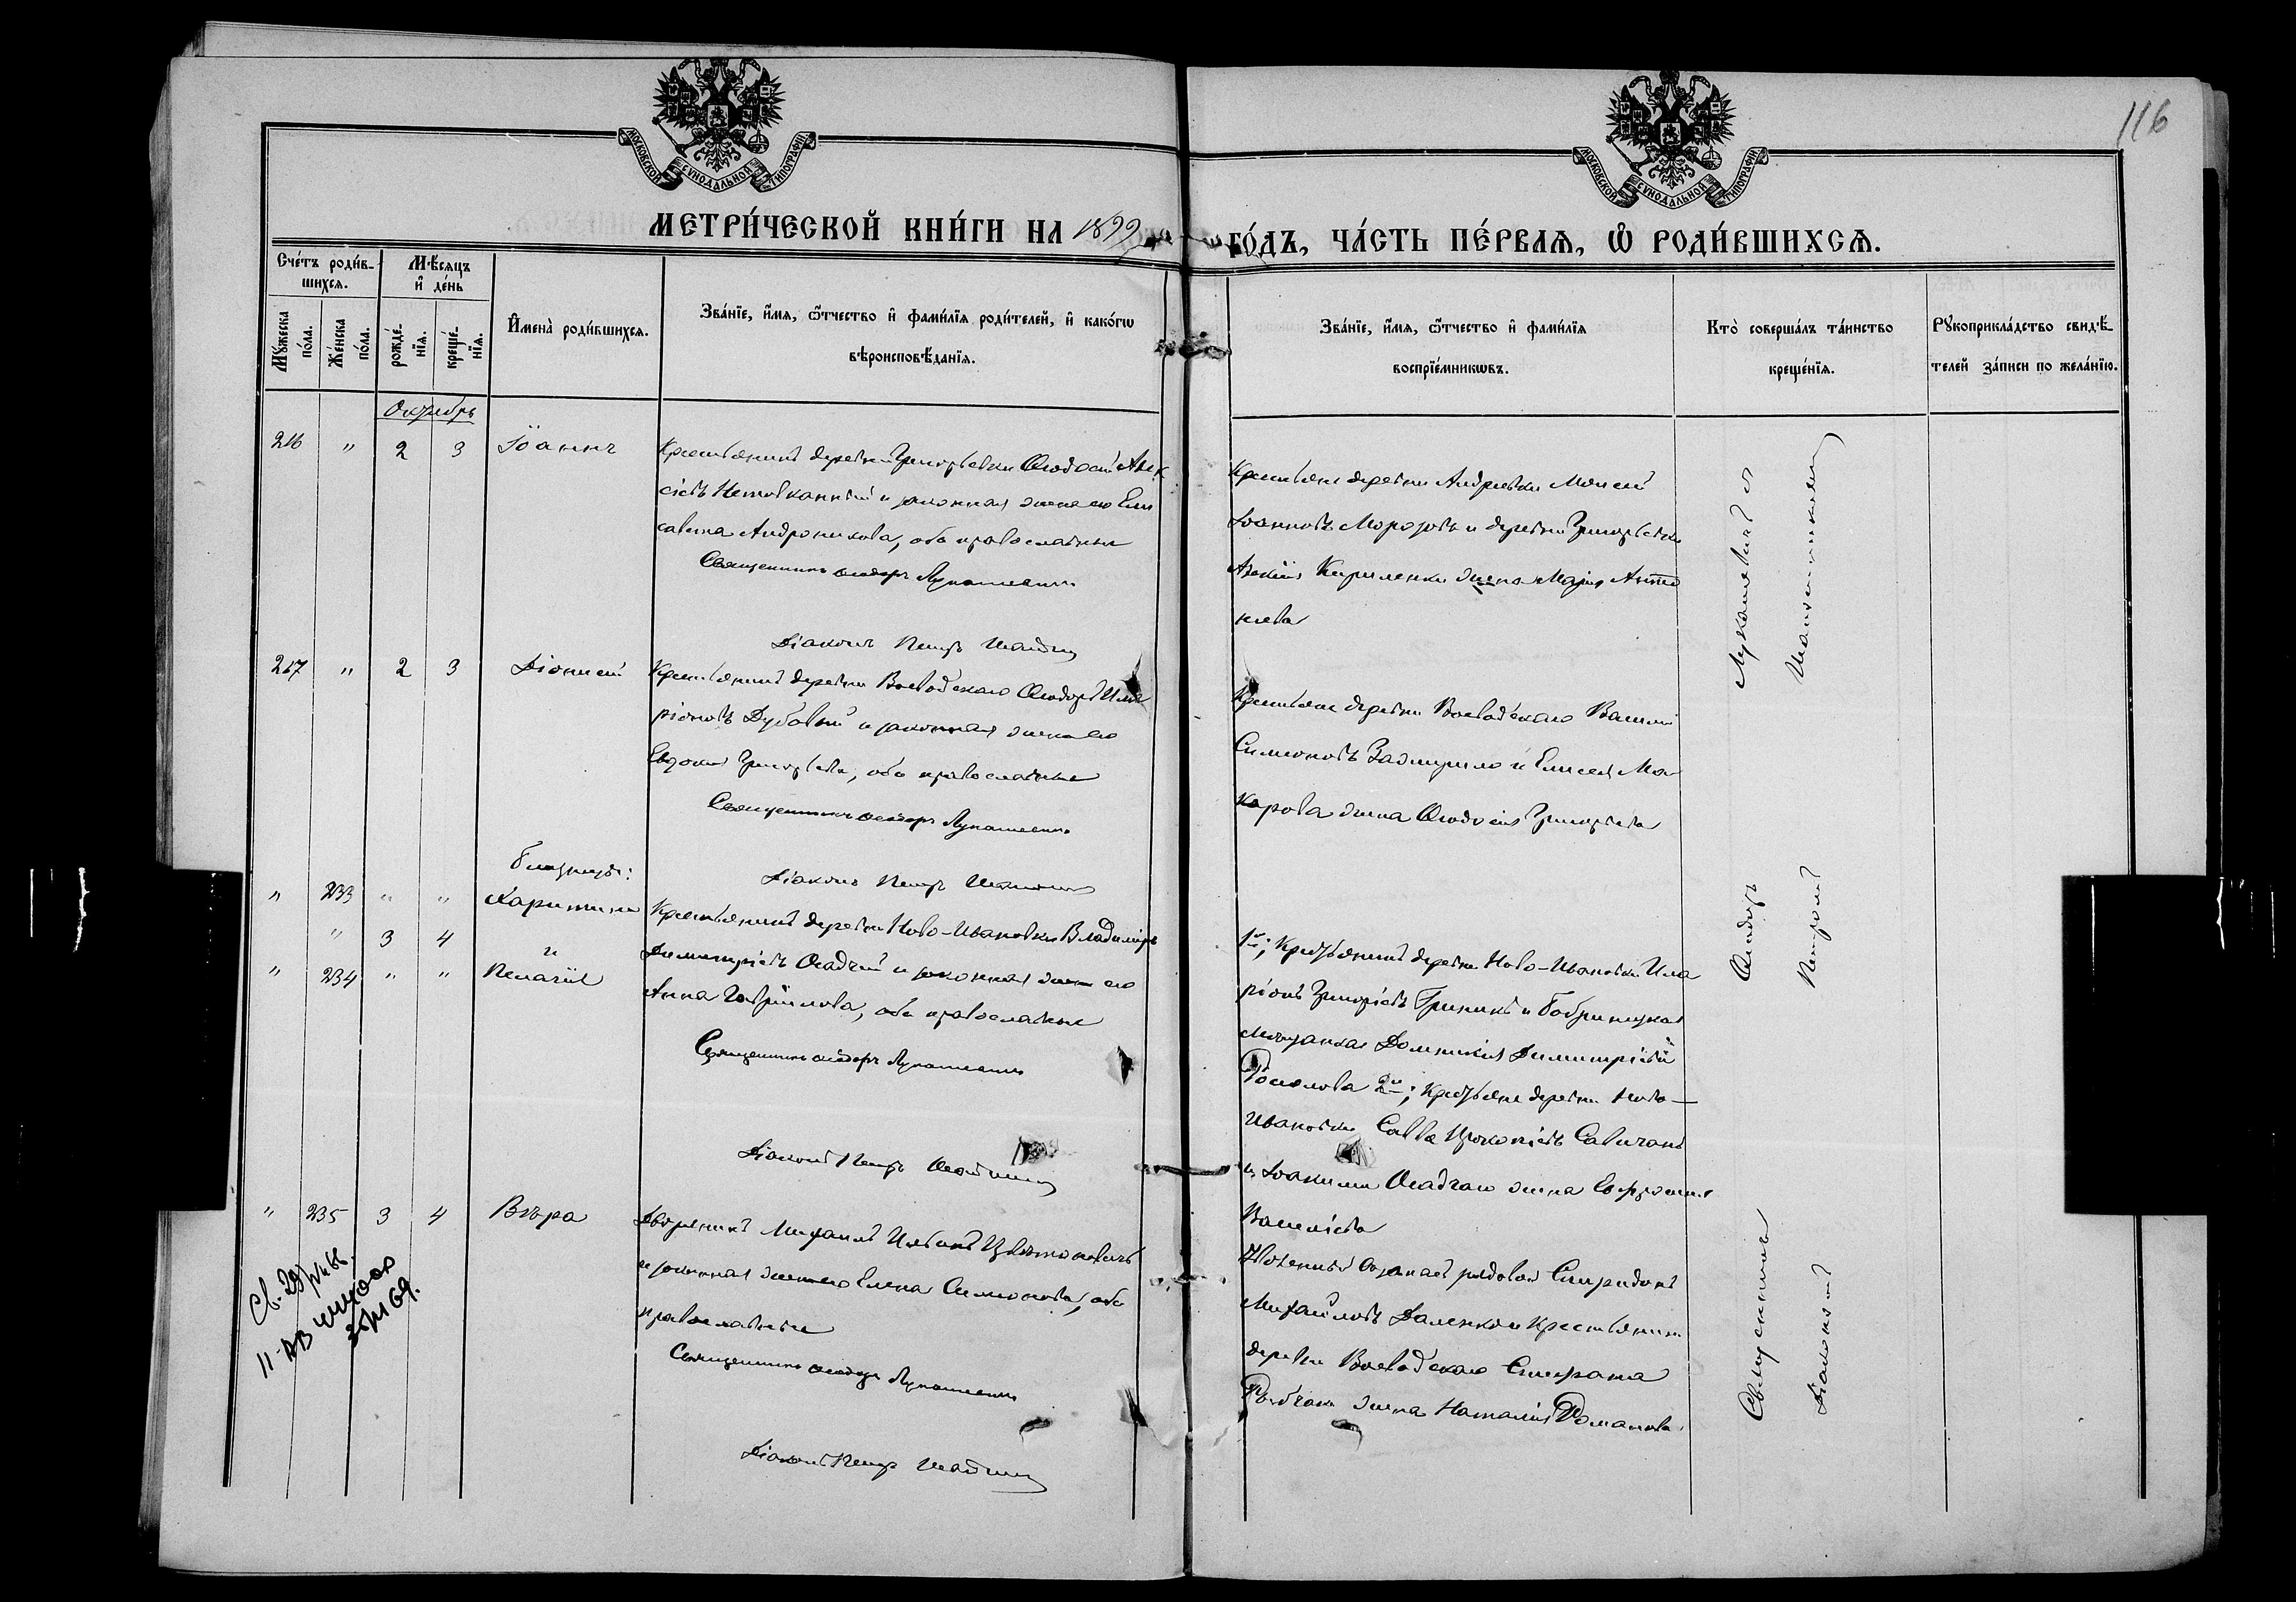 116
МОСКОВСКОЙ СѴНОДАЛЬНОЙ ТИПОГРАФІИ
МОСКОВСКОЙ СѴНОДАЛЬНОЙ ТИПОГРАФІИ
МЕТРИ́ЧЕСКОЙ КНИ́ГИ НА 1899
ГО́ДЪ, ЧА́СТЬ ПЕ́РВАЯ, Ѽ РОДИ́ВШИХСЯ.
Сче́тъ роди́в-
шихся.
Мѣ́сяцъ
и҆ де́нь
Мꙋ́жеска
по́ла.
Же́нска
по́ла.
рожде́-
нїя.
креще́-
нїя.
И҆мена̀ роди́вшихся.
Зва́нїе, и҆́мя, ѻ҆́тчество и҆ фами́лїя роди́телей, и҆ како́гѡ
вѣроисповѣ́данїя.
Зва́нїе, и҆́мя, ѻ҆́тчество и҆ фами́лїя
воспрїе́мникѡвъ.
Кто̀ соверша́лъ та́инство
креще́нїя.
Рꙋкоприкла́дство свидѣ́-
телей за́писи по жела́нїю.
Октябрь
216 " 2 3 Іоаннъ
Крестьянинъ деревни Григорьевки Ѳеодосій Алек
сіевъ и законная жена его Ели
савета Андроникова, оба православные
Священникъ Ѳеодоръ Лукашевичъ
Діаконъ Петръ
Крестьяне деревни Андреевки Моисей
Іоанновъ Морозовъ и деревни Григорьевки
Кириленки жена Марія Анто
нова
217 " 2 3 Діонисій
Крестьянинъ деревни Воеводскаго Ѳеодоръ Ила
ріоновъ Дубовый и законная жена его
Евдокія Григорьева, оба православные
Священникъ Ѳеодоръ Лукашевичъ
Діаконъ Петръ
Крестьяне деревни Воеводскаго Василій
Симеоновъ и Елисея Ма
карова жена Ѳеодосія Григорьева
Близнецы:
" 233 " " Харитина
" 3 4 и
" 234 " " Пелагія
Крестьянинъ деревни Ново-Ивановки Владиміръ
Димитріевъ Осадчій и законная жена его
Анна Гавріилова, оба православные
Священникъ Ѳеодоръ Лукашевичъ
Діаконъ Петръ
1й; Крестьянинъ деревни Ново-Ивановки Ила
ріонъ Григоріевъ Гриникъ и Бобринецкая
мѣщанка Домникія Димитріева
2й; Крестьяне деревни Ново-
Ивановки Савва Прокопіевъ
и Іоакима Осадчаго жена Евфросинія
Василіева
" 235 3 4 Вѣра
Дворянинъ Михаилъ
и законная жена его Елена Симеонова, оба
православные
Священникъ Ѳеодоръ Лукашевичъ
Діаконъ Петръ
рядовой Спиридонъ
Михайловъ Даленко и крестьянина
деревни Воеводскаго Стефана
жена Наталія Романова
Священникъ Ѳеодоръ Лукашевичъ и
Діаконъ Петръ